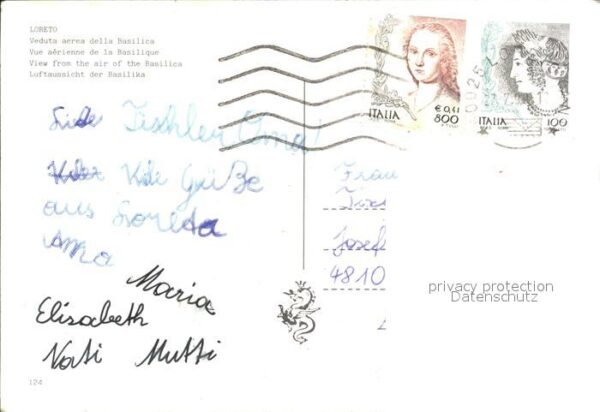 LORETO
Veduta aerea della Basilica
Vue aérienne de la Basilique
View from the air of the Basilica
Luftaussicht der Basilika
€ 0,41
ITALIA 800
ITALIA 100
Liebe Tischler Oma!
Grüße
aus Loreto
Maria
Elisabeth
Vati Mutti
124
Frau
Josef
4810
privacy protection
Datenschutz